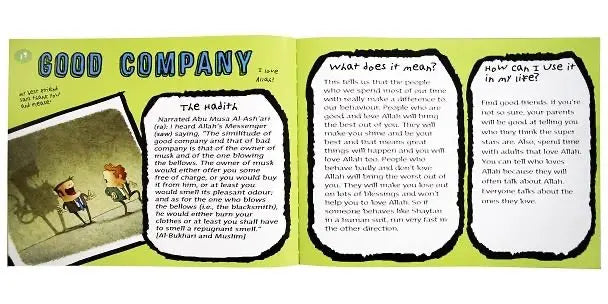 17
GOOD COMPANY
I love
Allah!
my best friend
says thank you
and please!
The Hadith
Narrated Abu Musa Al-Ash'ari
(ra): I heard Allah's Messenger
(saw) saying, "The similitude of
good company and that of bad
company is that of the owner of
musk and of the one blowing
the bellows. The owner of musk
would either offer you some
free of charge, or you would buy
it from him, or at least you
would smell its pleasant odour;
and as for the one who blows
the bellows (i.e., the blacksmith),
he would either burn your
clothes or at least you shall have
to smell a repugnant smell."
[Al-Bukhari and Muslim]
What does it mean?
This tells us that the people
who we spend most of our time
with really make a difference to
our behaviour. People who are
good and love Allah will bring
the best out of you. They will
make you shine and be your
best and that means great
things will happen and you will
love Allah too. People who
behave badly and don't love
Allah will bring the worst out of
you. They will make you lose out
on lots of blessings and won't
help you to love Allah. So if
someone behaves like Shaytan
in a human suit, run very fast in
the other direction.
How can I use it
in my life?
Find good friends. If you're
not so sure, your parents
will be good at telling you
who they think the super
stars are. Also, spend time
with adults that love Allah.
You can tell who loves
Allah because they will
often talk about Allah.
Everyone talks about the
ones they love.